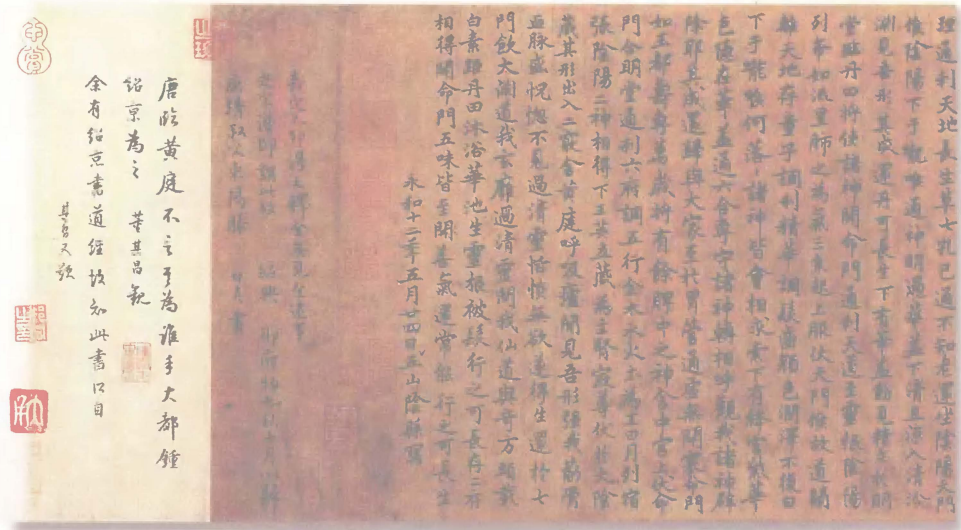 理通利天地長生草七孔已通不知老還坐陰陽天門
候陰陽下于嚨喉通神明過華蓋下清且涼入清泠
淵見吾形其成還丹可長生下有華蓋動見精立於明
堂臨丹田將使諸神開命門通利天道至靈根陰陽
列布如流星肺之為氣三焦起上服伏天門候故道闚
離天地存童子調利精華調髮齒顏色潤澤不復白
下于嚨喉何落落諸神皆會相求索下有絳宮紫華
色隱在華蓋通六合專守諸神轉相呼觀我諸神辟
除耶其成還歸與大家至於胃管通虛無閉塞命門
如玉都壽專萬歲將有餘脾中之神舍中宮上伏命
門合明堂通利六府調五行金木水火土為王日月列宿
張陰陽二神相得下玉英五藏為主腎最尊伏於大陰
藏其形出入二竅舍黃庭呼吸廬間見吾形強我筋骨
血脈盛恍惚不見過清靈恬惔無欲遂得生還於七
門飲大淵道我玄廱過清靈問我仙道與奇方頭戴
白素距丹田沐浴華池生靈根被髮行之可長存二府
相得開命門五味皆至開善氣還常能行之可長生
永和十二年五月廿四日五山陰縣寫
唐臨黃庭不知為誰手大都鍾
紹京為之 董其昌觀
余有紹京書道經故知此書以自
其昌又題